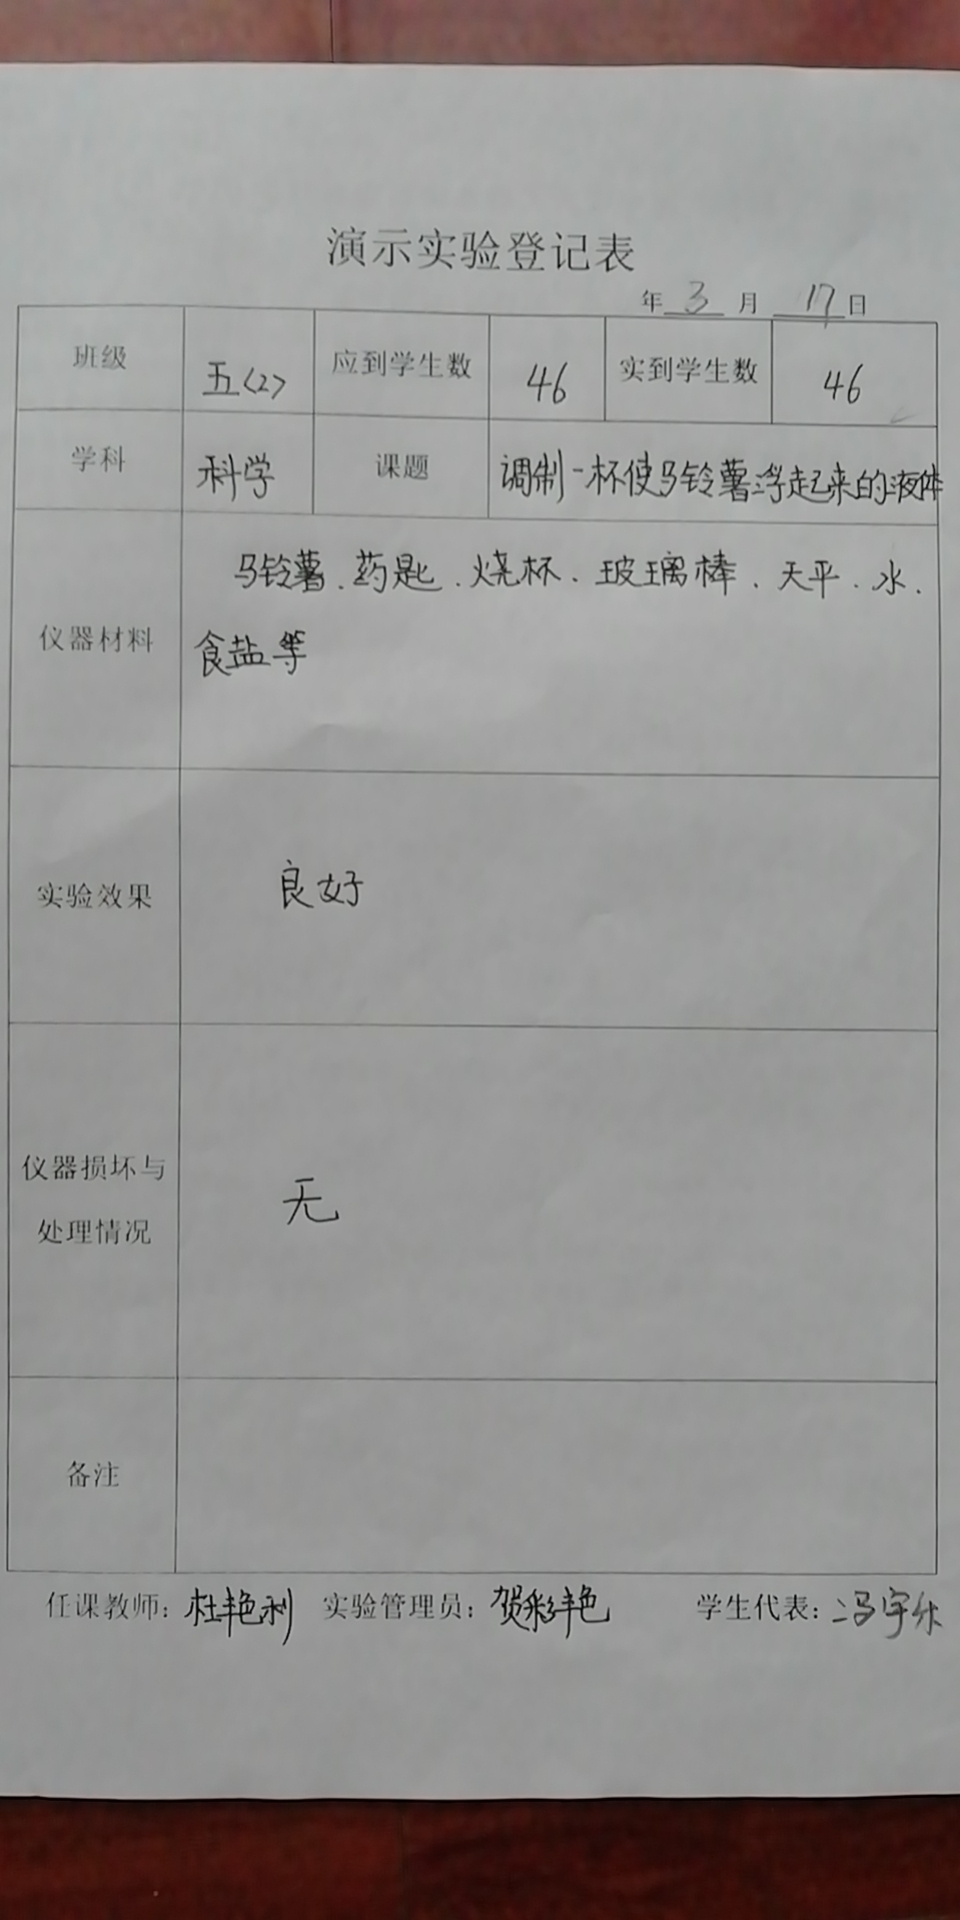 演示实验登记表
年 3 月 17 日
班级 五<2> 应到学生数 46 实到学生数 46
学科 科学 课题 调制一杯使马铃薯浮起来的液体
仪器材料 马铃薯、药匙、烧杯、玻璃棒、天平、水、
食盐等
实验效果 良好
仪器损坏与
处理情况 无
备注
任课教师：杜艳利 实验管理员：贺彩艳 学生代表：冯宇